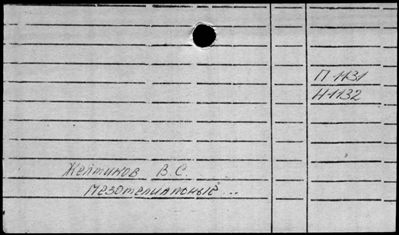 П-1131
Н-1132
Желтиков В.С.
Мезотелиальные ..